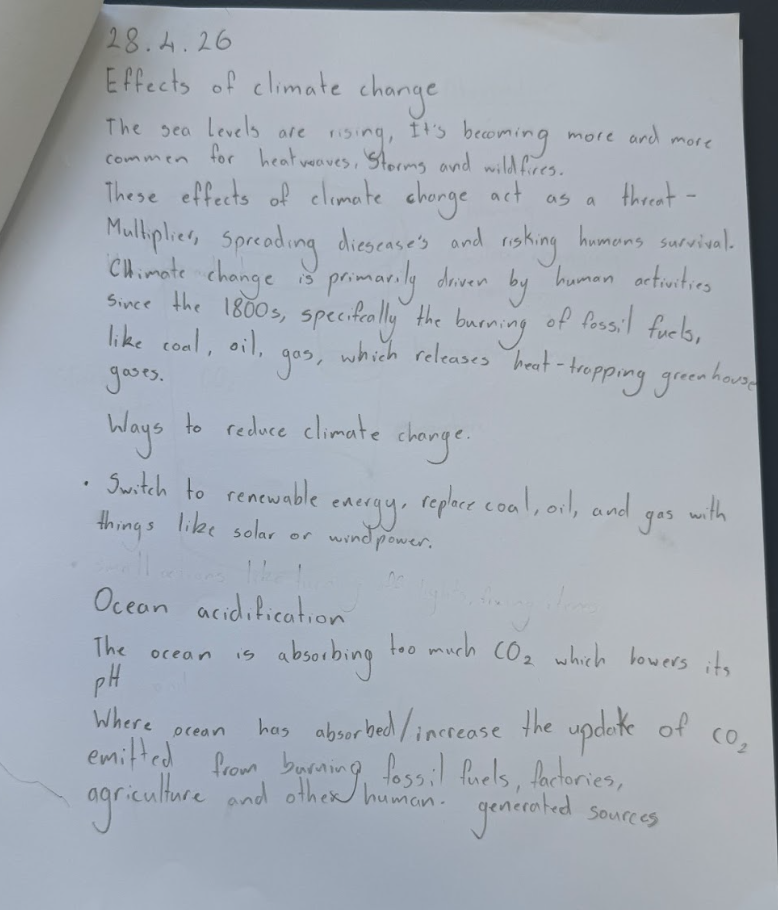 28.4.26
Effects of climate change
The sea levels are rising, It's becoming more and more
commen for heatwaves, Storms and wildfires.
These effects of climate change act as a threat-
Multiplier, spreading diesease's and risking humans survival.
Climate change is primarily driven by human activities
since the 1800s, specifcally the burning of fossil fuels,
like coal, oil, gas, which releases heat-trapping greenhouse
gases.
Ways to reduce climate change.
• Switch to renewable energy, replace coal, oil, and gas with
things like solar or windpower.
Ocean acidification
The ocean is absorbing too much CO₂ which lowers its
pH
Where ocean has absorbed/increase the update of CO₂
emitted from burning fossil fuels, factories,
agriculture and other human. generated sources